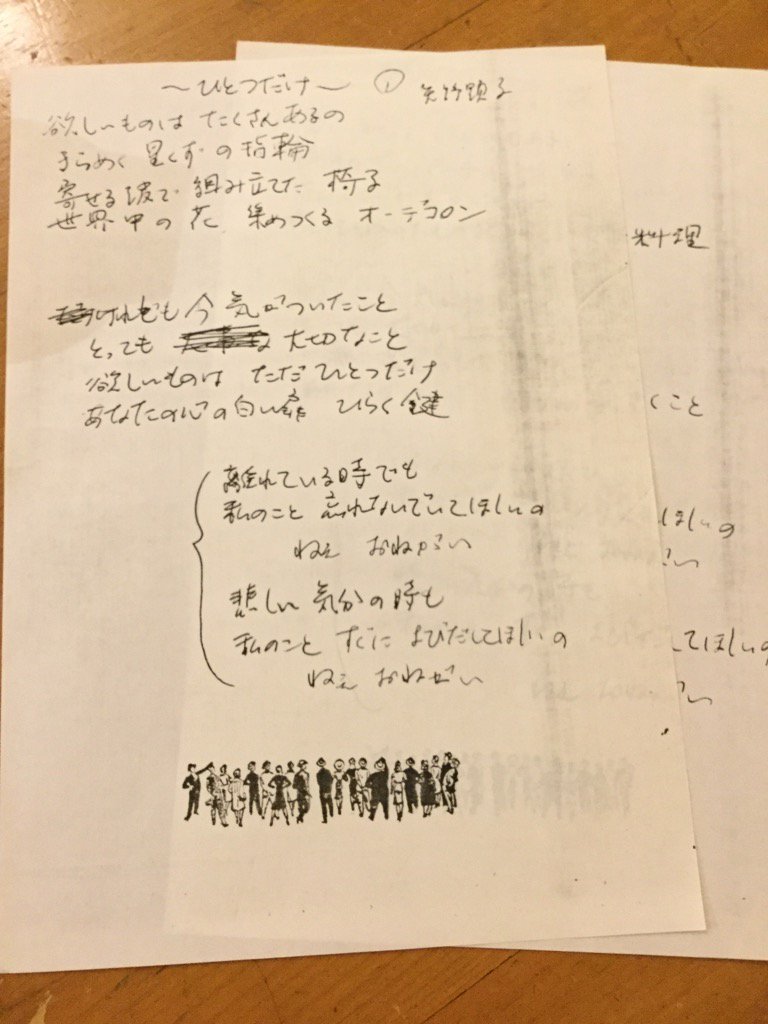 ～ひとつだけ～ ① 矢野顕子
欲しいものは たくさんあるの
きらめく 星くずの指輪
寄せる波で 組み立てた 椅子
世界中の花 集めつくる オーデコロン
けれども今 気がついたこと
とっても 大切なこと
欲しいものは ただひとつだけ
あなたの心の白い扉 ひらく鍵
離れている時でも
私のこと 忘れないでいてほしいの
ねぇ おねがい
悲しい気分の時も
私のこと すぐに よびだしてほしいの
ねぇ おねがい
料理
くこと
ほしいの
がい
してほしいの
がい